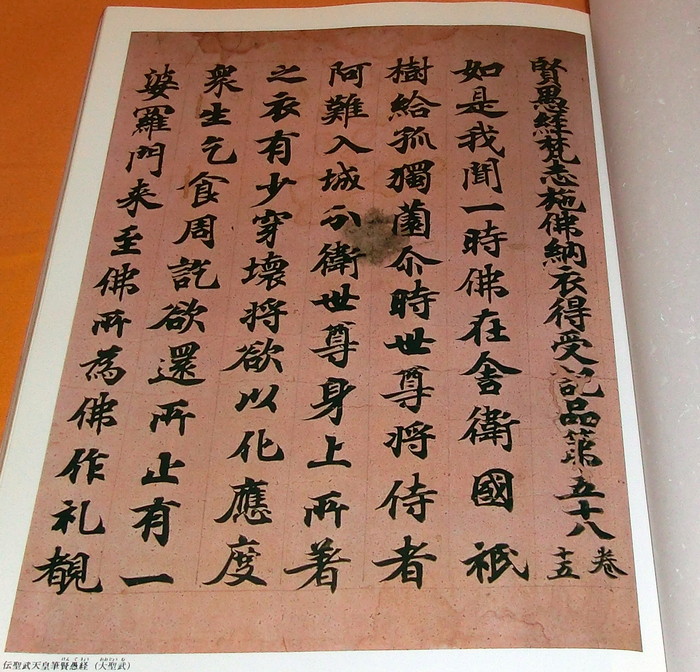 賢愚経梵志施佛納衣得受記品第五十八 卷十五
如是我聞一時佛在舎衛國祇
樹給孤獨薗尒時世尊将侍者
阿難入城分衛世尊身上所著
之衣有少穿壊将欲以化應度
衆生乞食周訖欲還所止有一
婆羅門来至佛所為佛作礼覩
伝聖武天皇筆賢愚経（大聖武）
けんぐきょう おおじょうむ